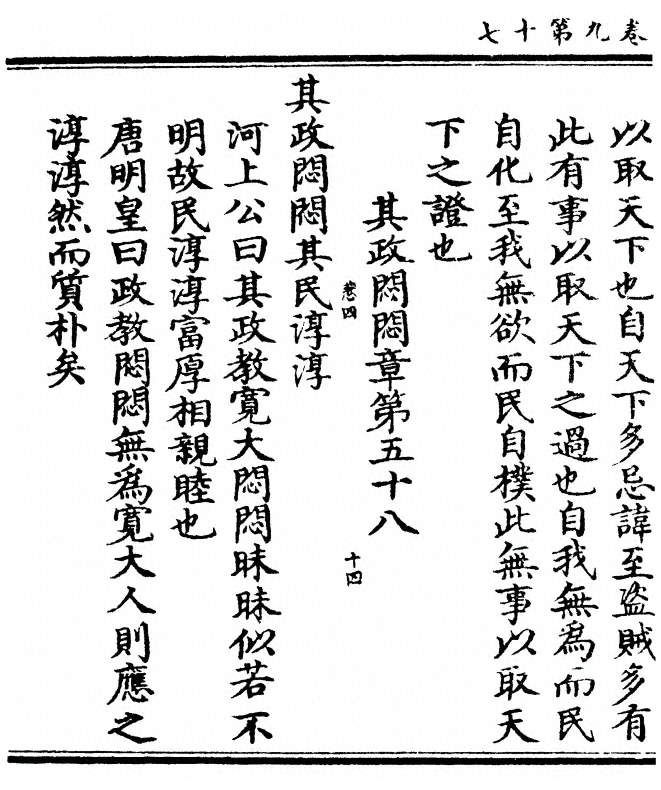 卷九第十七
以取天下也自天下多忌諱至盜賊多有
此有事以取天下之過也自我無為而民
自化至我無欲而民自樸此無事以取天
下之證也
其政悶悶章第五十八
卷四
十四
其政悶悶其民淳淳
河上公曰其政教寬大悶悶昧昧似若不
明故民淳淳富厚相親睦也
唐明皇曰政教悶悶無為寬大人則應之
淳淳然而質朴矣